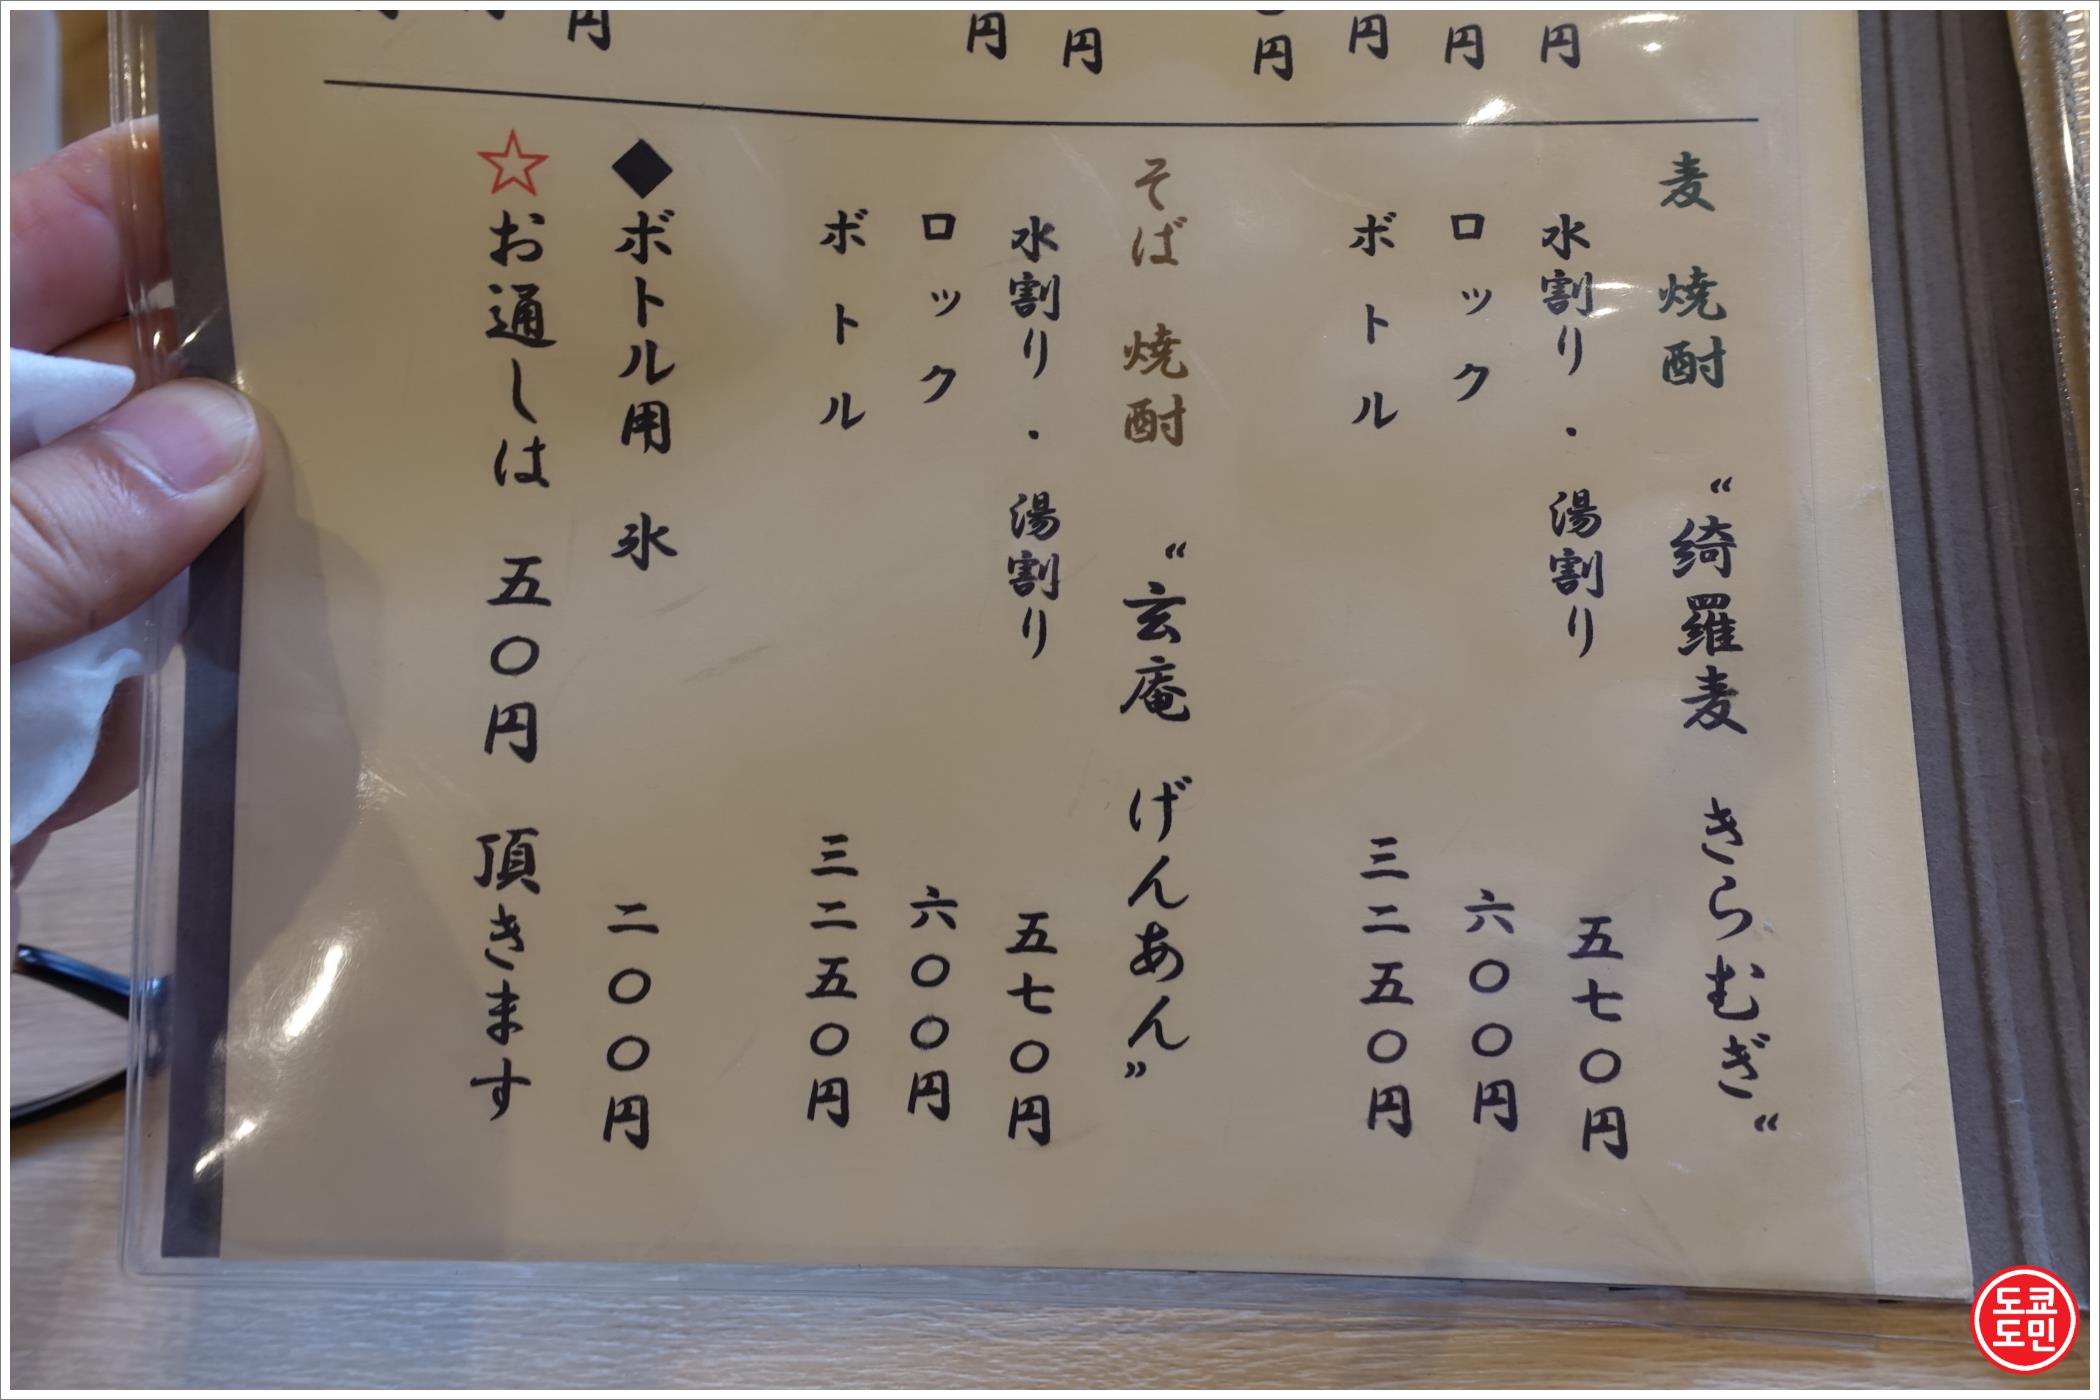 円
円
円
円
円
円
円
麦 焼酎 〝綺羅麦 きらむぎ〝
水割り・湯割り 五七〇円
ロック 六〇〇円
ボトル 三二五〇円
そば 焼酎 〝玄庵 げんあん〟
水割り・湯割り 五七〇円
ロック 六〇〇円
ボトル 三二五〇円
◆ボトル用 氷 二〇〇円
☆お通しは 五〇円 頂きます
도쿄
도민